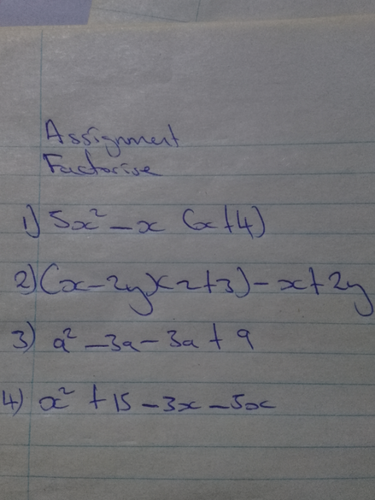 Assignment
Factorise
1) 5x² - x (x+4)
2) (x-2y)(z+3) - x+2y
3) a² - 3a - 3a + 9
4) x² + 15 - 3x - 5x